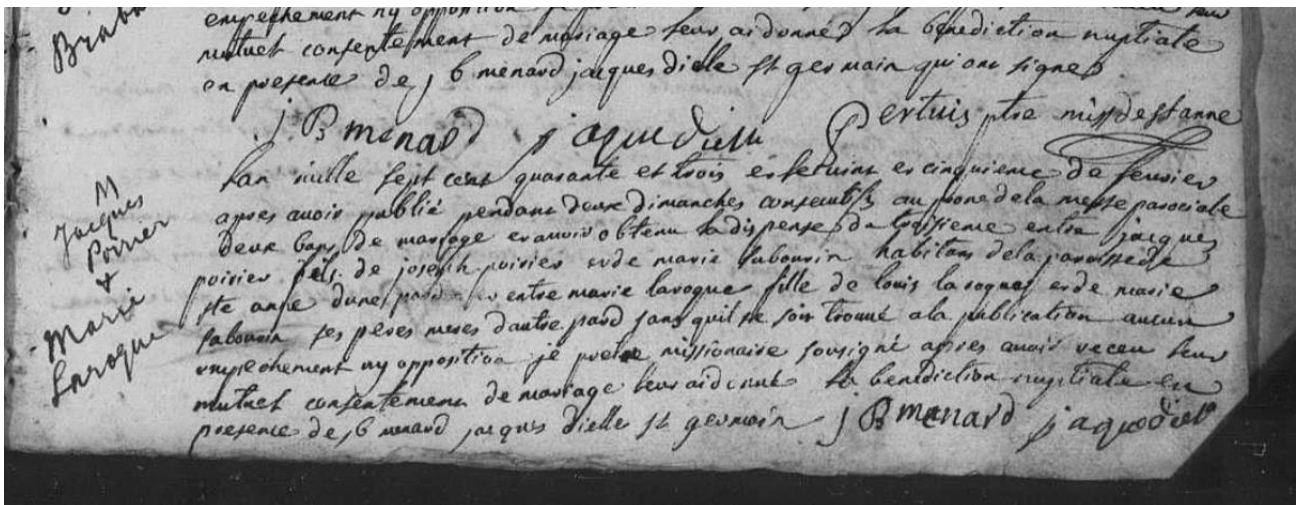 Brab
empechement ny opposition
mutuel consentement de mariage leur ai donnéz la bénediction nuptiale
en presence de j b menard jacques dielle st germain qui ont signez
j B menard jaque diell Pertuis ptre miss de st anne
M
Jacques
Poirier
&
Marie
Laroque
Lan mille sept cent quarante et trois et le vint et cinquieme de fevrier
apres avoir publié pendant deux dimanches consecutifs au prone de la messe parociale
deux bans de mariage et avoir obtenu la dispense du troisieme entre jacques
poirier fils de joseph poirier et de marie sabourin habitans de la paroisse de
ste anne dune pard et entre marie laroque fille de louis laroque et de marie
sabourin ses peres meres dautre pard sans quil se soit trouvé a la publication aucun
empechement ny opposition je pretre missionaire sousigné apres avoir receu leur
mutuel consentement de mariage leur ai donné la benediction nuptiale en
presence de j b menard jacques dielle st germain j B menard jaque diel